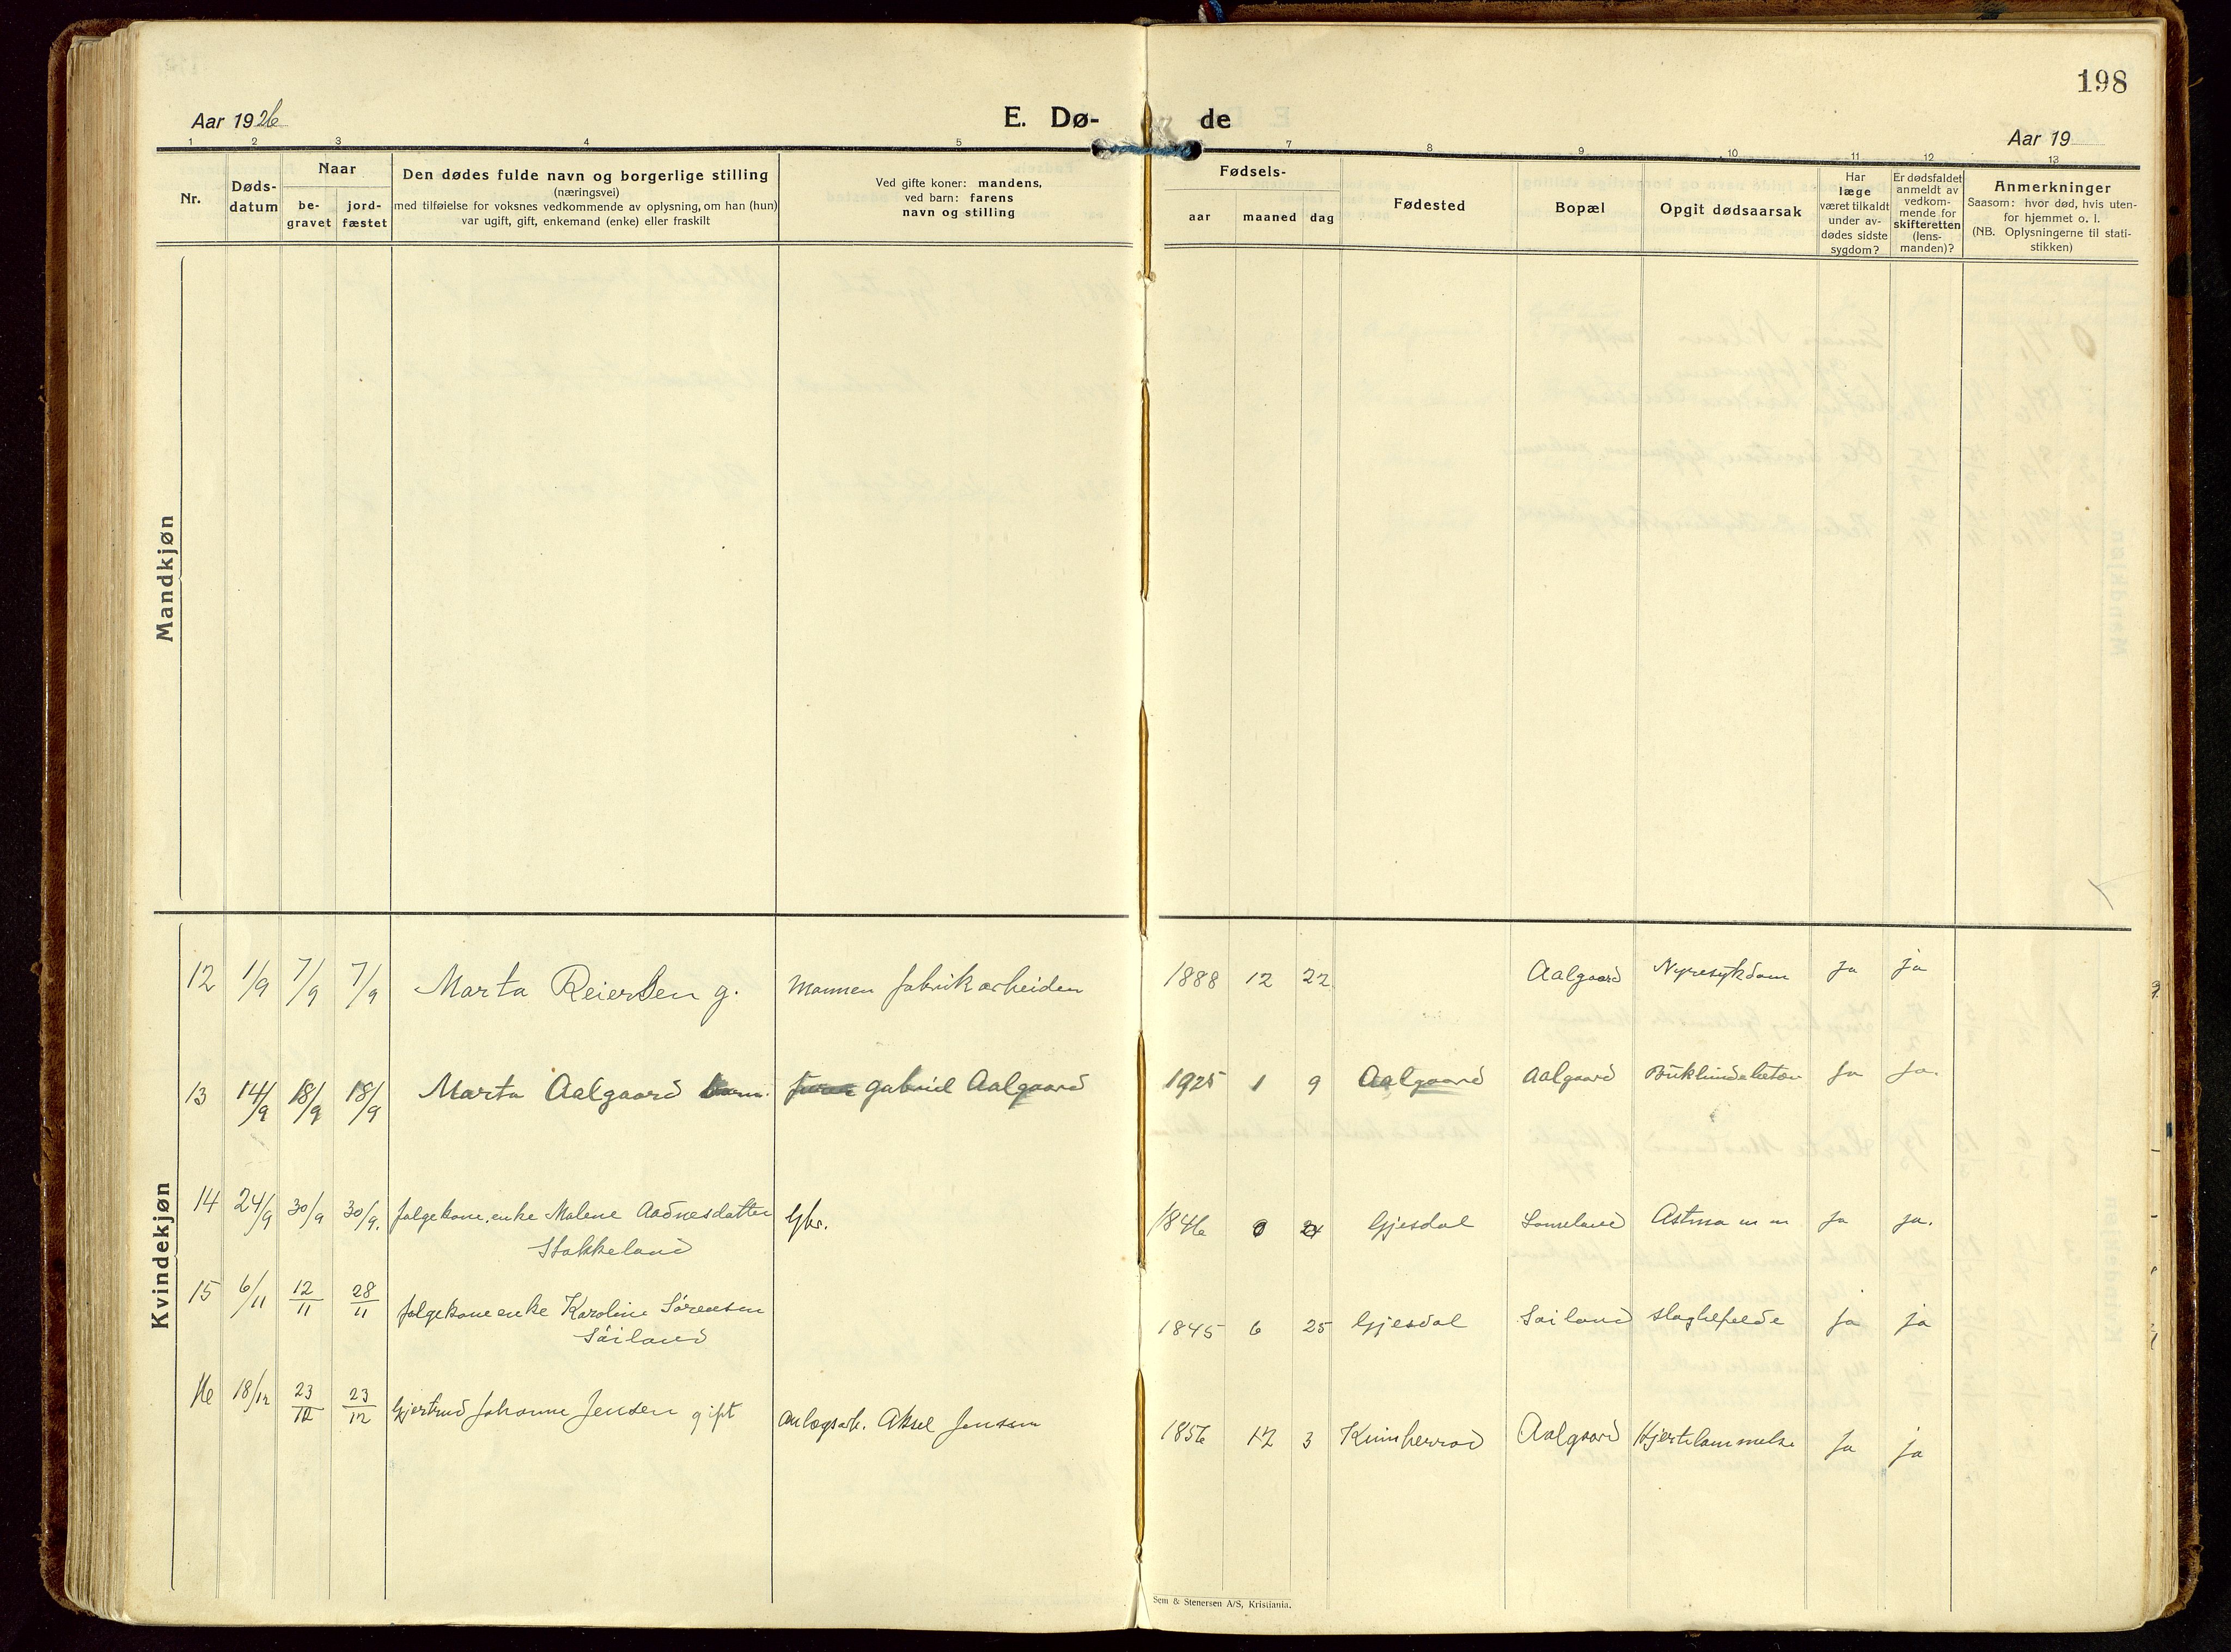 198
Aar 1926
E. Dø-
de
Aar 19
1 2 3 4 5 7 8 9 10 11 12 13
Nr.
Døds-
datum
Naar
be-
gravet
jord-
fæstet
Den dødes fulde navn og borgerlige stilling
(næringsvei)
med tilføielse for voksnes vedkommende av oplysning, om han (hun)
var ugift, gift, enkemand (enke) eller fraskilt
Ved gifte koner: mandens,
ved barn: farens
navn og stilling
Fødsels-
aar maaned dag
Fødested
Bopæl
Opgit dødsaarsak
Har
læge
været tilkaldt
under av-
dødes sidste
sygdom?
Er dødsfaldet
anmeldt av
vedkom-
mende for
skifteretten
(lens-
manden)?
Anmerkninger
Saasom: hvor død, hvis uten-
for hjemmet o. l.
(NB. Oplysningerne til stati-
stikken)
Mandkjøn
Kvindekjøn
12 1/9 7/9 7/9 Marta Reiersen g. mannen fabrikarbeider 1888 12 22 Aalgaard Nyresykdom ja ja
13 14/9 18/9 18/9 Marta Aalgaard barn. Gabriel Aalgaard 1925 1 9 Aalgaard Aalgaard ja ja.
14 24/9 30/9 30/9. folgekone, enke Malene Aadnesdatter Gbr. 1846 Gjesdal Astma m m ja ja.
Stokkeland
15 6/11 12/11 28/11 folgekone enke Karoline Sörensen 1845 6 25 Gjesdal Söiland ja ja
Söiland
16 18/12 23/12 23/12 Gjertrud Johanne Jensen gift anlægsarb. Aksel Jensen 1856 12 3 Kvinherrad Aalgaard Hjertelammelse ja ja
Sem & Stenersen A/S, Kristiania.